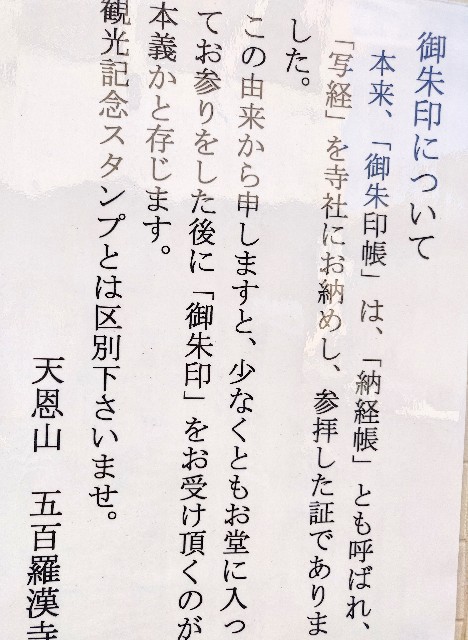 御朱印について
本来、「御朱印帳」は、「納経帳」とも呼ばれ、
「写経」を寺社にお納めし、参拝した証でありま
した。
この由来から申しますと、少なくともお堂に入っ
てお参りをした後に「御朱印」をお受け頂くのが
本義かと存じます。
観光記念スタンプとは区別下さいませ。
天恩山 五百羅漢寺